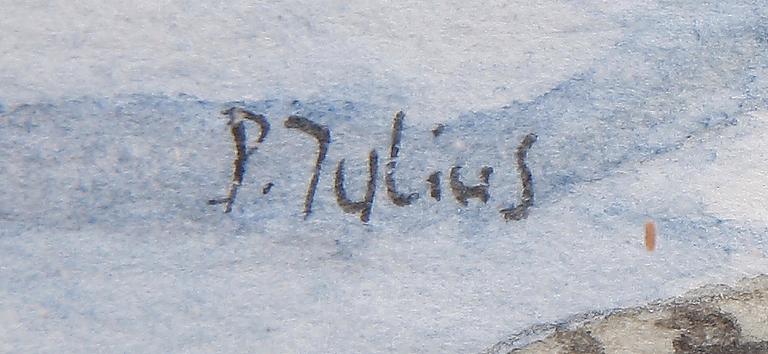 P. Julius